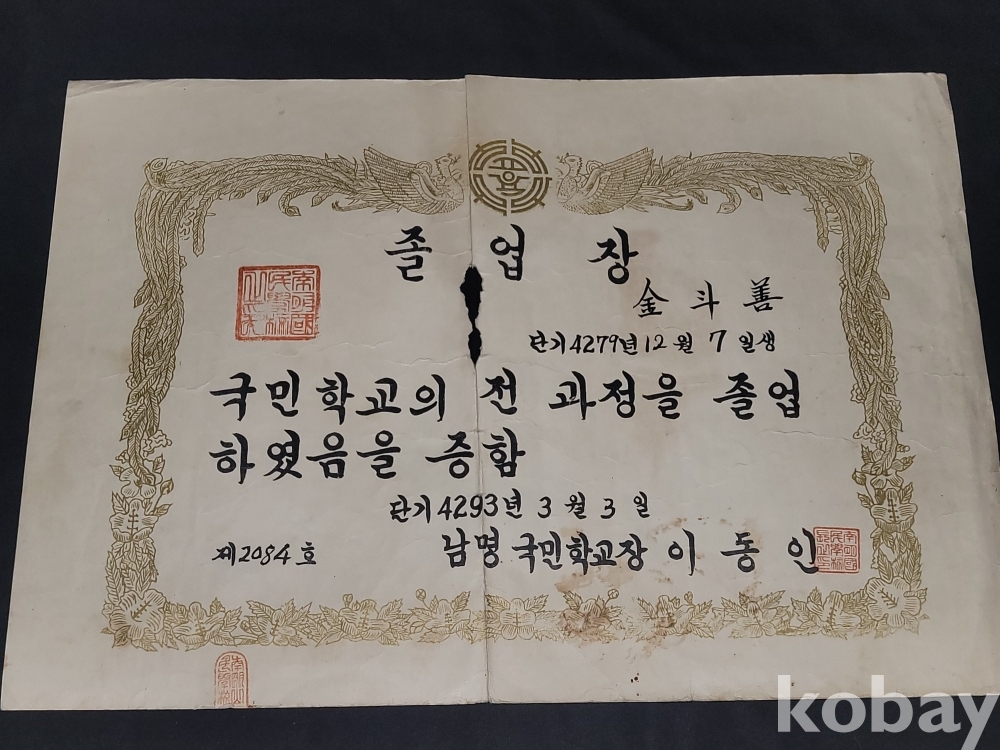 졸업장
金斗善
단기 4279년 12월 7일생
국민학교의 전 과정을 졸업
하였음을 증함
단기 4293년 3월 3일
제2084호
남명 국민학교장 이동인
kobay